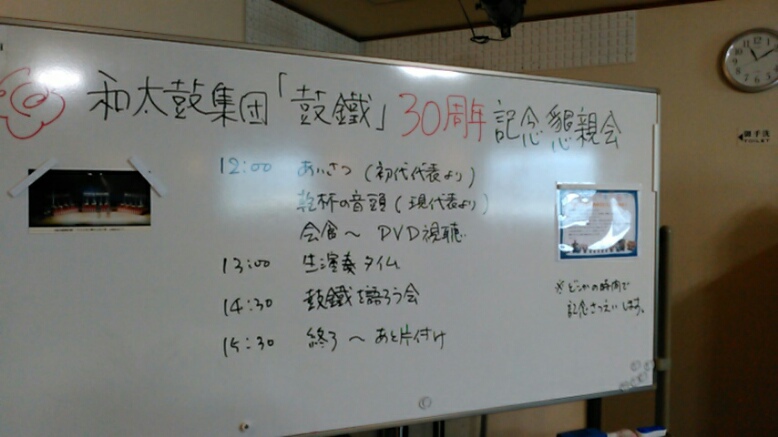 和太鼓集団「鼓鐵」30周年記念懇親会
12:00 あいさつ(初代代表より)
乾杯の音頭(現代表より)
会食〜 DVD視聴
13:00 生演奏タイム
14:30 鼓鐵を語ろう会
15:30 終了〜あと片付け
※どこかの時間で
記念さつえいします。
御手洗
TOILET